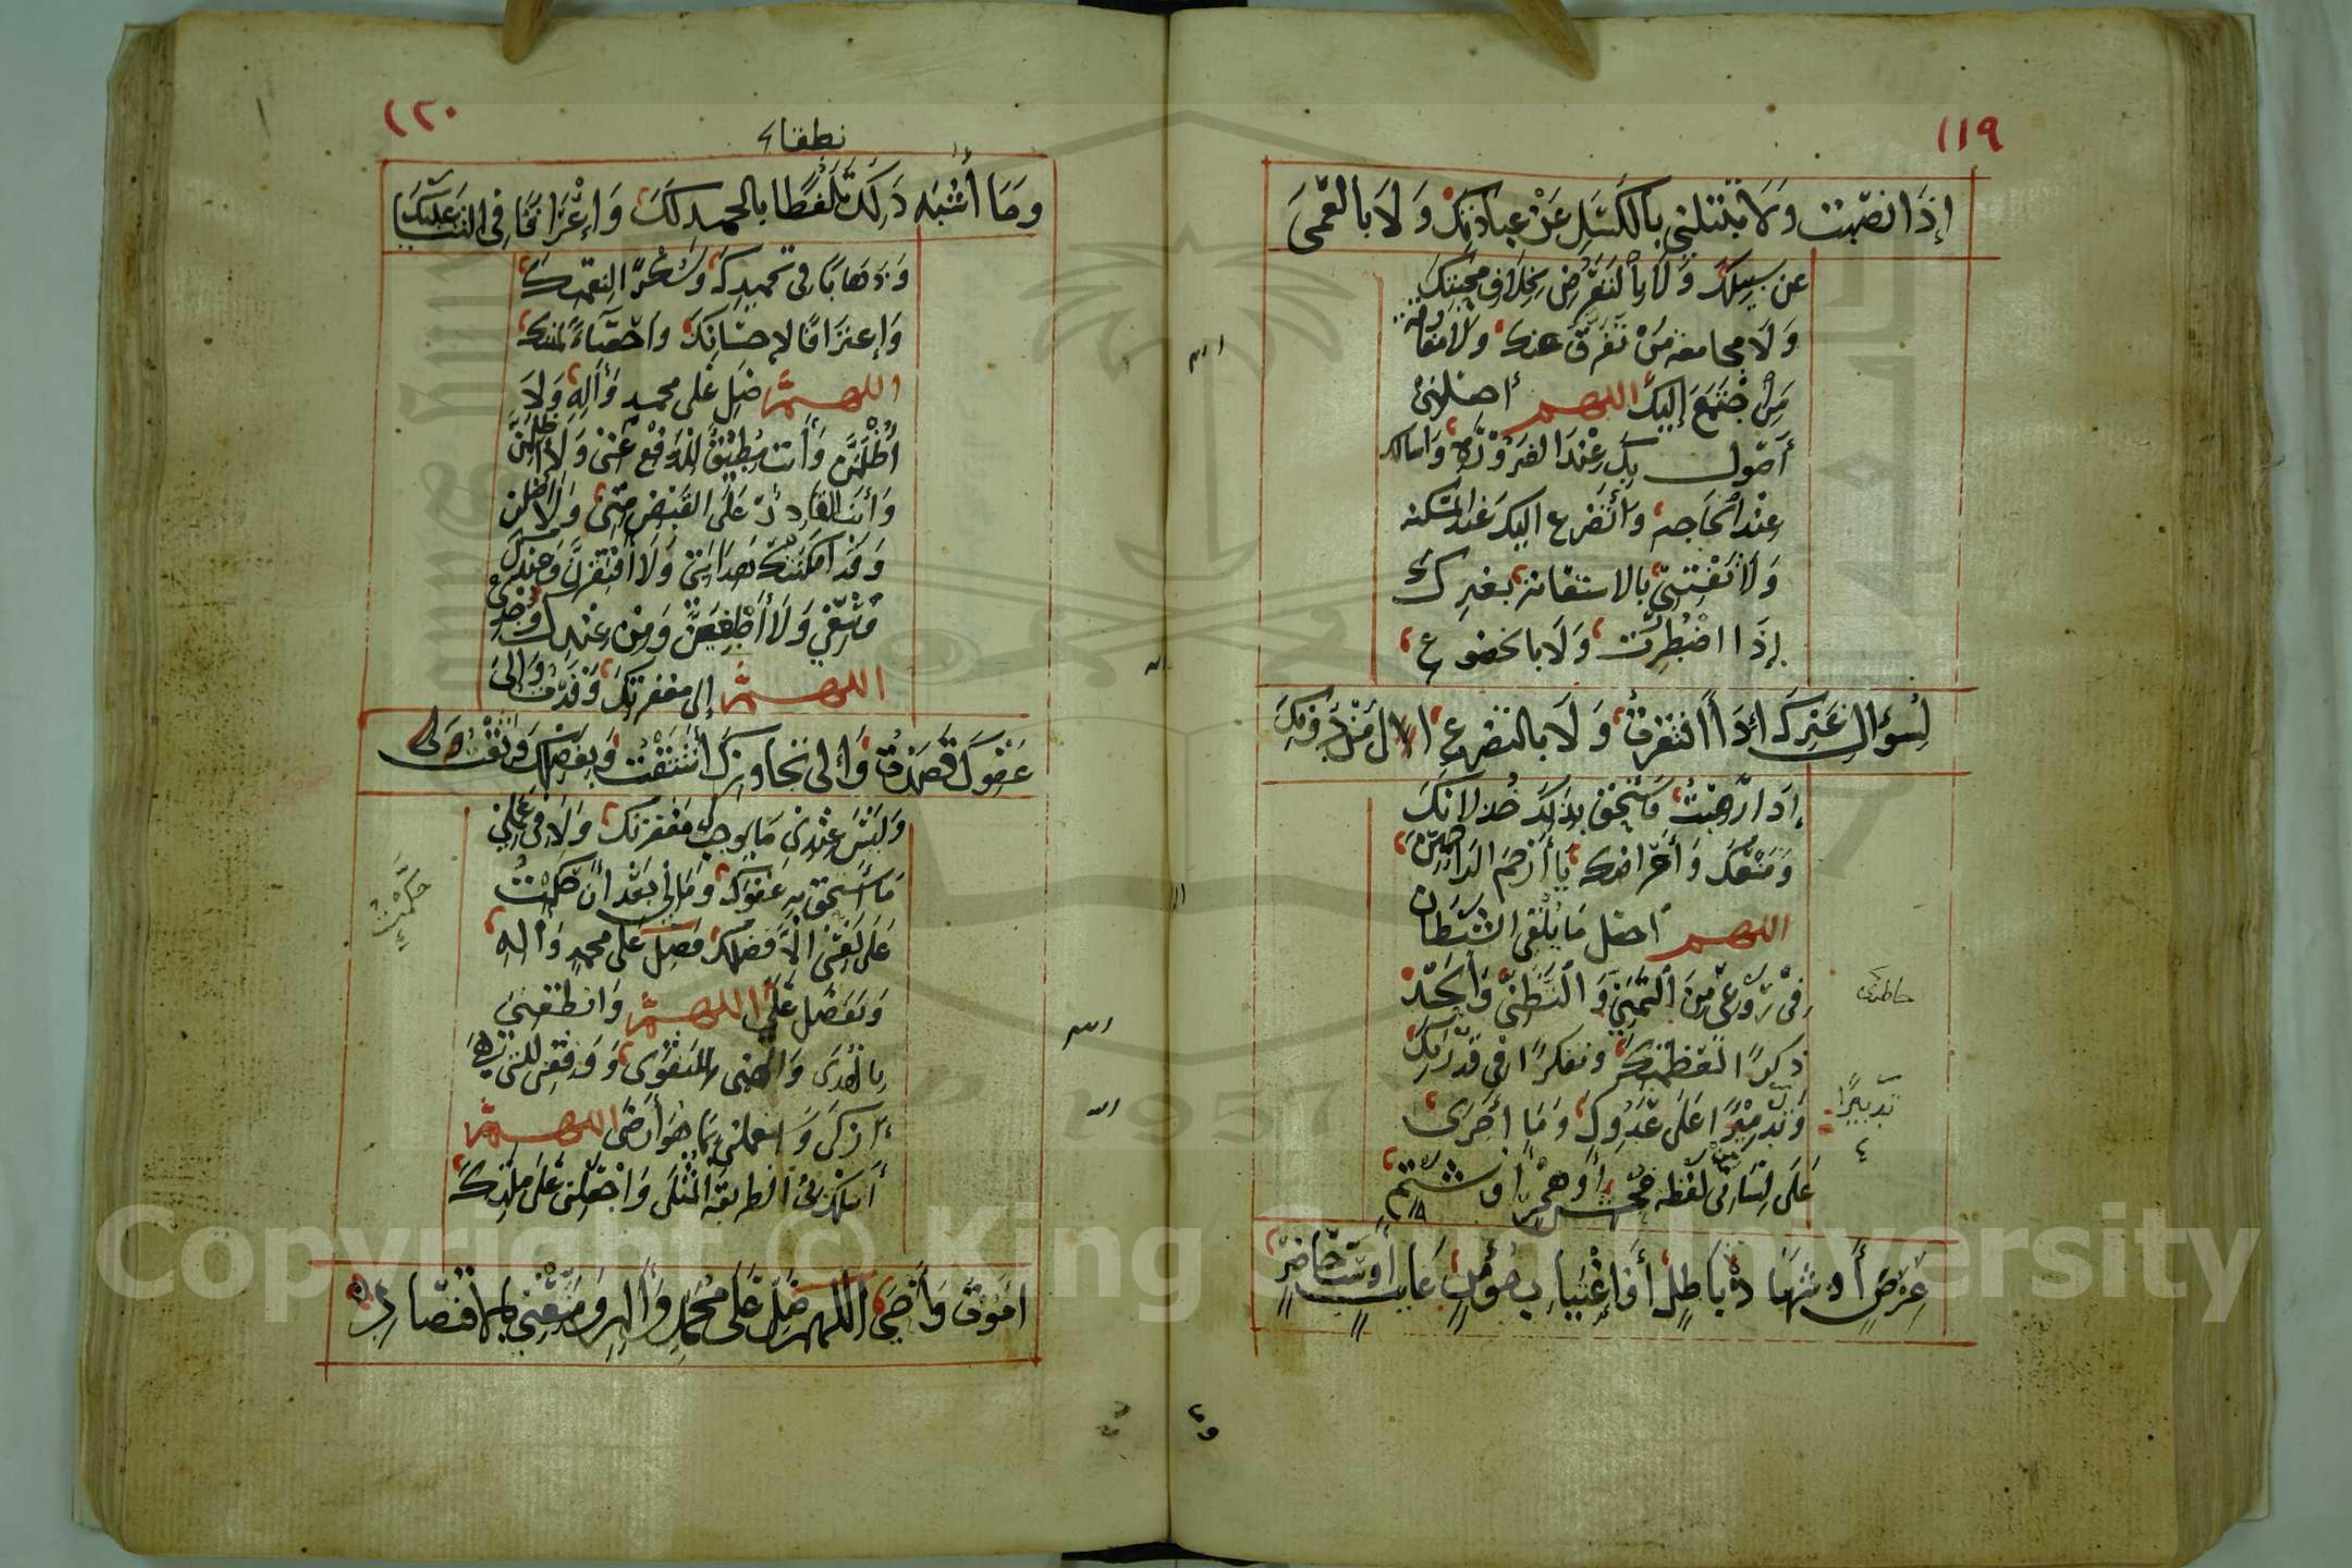 ١١٩
إِذَا نصبت وَلَا تبتلني بالكَسَلِ عَنْ عِبَادَتِكَ وَلَا بالعَمَى
عن سبيلك وَلَا بالتَعَرُّضِ لِخِلَافِ محبتك
وَلَا مجامعة مَنْ تَفَرَّقَ عنك وَلَا مفارقة
مَن اجْتَمَعَ إِلَيْكَ اللهم اجعلني
أَصُول بِكَ عِنْدَ الضرورة وَاسالك
عِنْدَ الْحَاجة وَأَتَضَرع اليك عند المسكنة
وَلَا تَفْتِنِّي بالاستعانة بغيرك
إِذَا اضْطُرِرْت وَلَا بالخضوع
لِسُؤال غَيْرِكَ إِذَا افْتَقَرتُ وَلَا بالتضرع الى مَنْ دُونِكَ
إِذَا رَهِبْتُ فأستحق بذلك خُذلانكَ
وَمَنْعَكَ وَأَعْرَاضك يَا أَرْحَمَ الراحمين
اللهم اجعل مَا يُلْقِي الشَّيْطَان
فِي رَوْعِي مِنَ التَّمَنِّي وَالتَّظَنِّي وَالْحَسَد
ذكرًا لعَظَمَتِكَ وتفكرًا فِي قُدْرَتِكَ
وَتَدْمِيرًا عَلَى عَدُوِّكَ وَمَا أَجْرَى
تَدْبِيرًا
٤
عَلَى لِسَانِي مِنْ لَفْظة فُحْشٍ أَوْ هُجْرٍ أو شَتْمِ
عِرْضٍ أَو شَهَادة بَاطِلٍ أَو اغْتِيَاب مُؤْمِنٍ غَائِبٍ أَوْ سَبِّ حَاضِرٍ
١٢٠
نطقا
وَمَا أَشْبَه ذَلِكَ تَلَفُّظًا بالحمد لَكَ وَإِغْرَاقًا فِي الثناء عَلَيْكَ
وَذَهَابًا فِي تمجيدِكَ وَشُكْرًا لِنِعْمَتِكَ
وَاعترَافًا لإحسَانِكَ وَاحْصَاءً لمننك
اللهم صَلِّ عَلَى محمد وَآلِهِ وَلَا
أُظْلَمَنَّ وَأَنت مُطِيْقٌ للدَفْعِ عَنِّي وَلَا أَظْلِمَنَّ
وَأَنت القَادِرُ عَلَى القَبْضِ مِنِّي وَلَا أَضِلَّن
وَقَدْ أَمْكَنَتْكَ هِدَايَتِي وَلَا أَفْتَقِرَنَّ وَمن عِنْدِكَ
وُسْعِي وَلَا أَطْغَيَنَّ وَمِنْ عِنْدِكَ وُجْدِي
اللهم إِلى مَغْفرتِكَ وَفَدْتُ وَإِلَى
عَفْوِكَ قَصَدْتُ وَإِلى تجَاوزِكَ اشْتَقْتُ وَبِفَضْلِكَ وَثِقْتُ
وَلَيْسَ عِنْدِي مَا يوجِبُ مَغْفرتك وَلَا فِي عَمَلِي
مَا أَستحق بِهِ عَفْوَكَ وَمَا لِي بَعْدَ أَنْ حَكَمْتُ
حَكَمْتُ
عَلَى نَفْسِي إِلَّا فَضْلُكَ فَصَلِّ عَلَى مُحمد وَآلِهِ
وَتَفَضَّل عَلَيَّ اللهم وَانطقني
بِالْهُدَى وَأَلْهِمْني التَّقْوَى وَوَفِّقْنِي للتي هِيَ
ازكَى وَاسْتَعملني بِمَا هُوَ أَرْضَى اللهم
اسْلك بِي الطريقة المُثْلَى وَاجْعَلني عَلَى ملتك
امُوتُ وَأَحْيَى اللهم صَلِّ عَلَى مُحَمَّدٍ وَآلِهِ وَمَتِّعْنِي بالاقتصاد